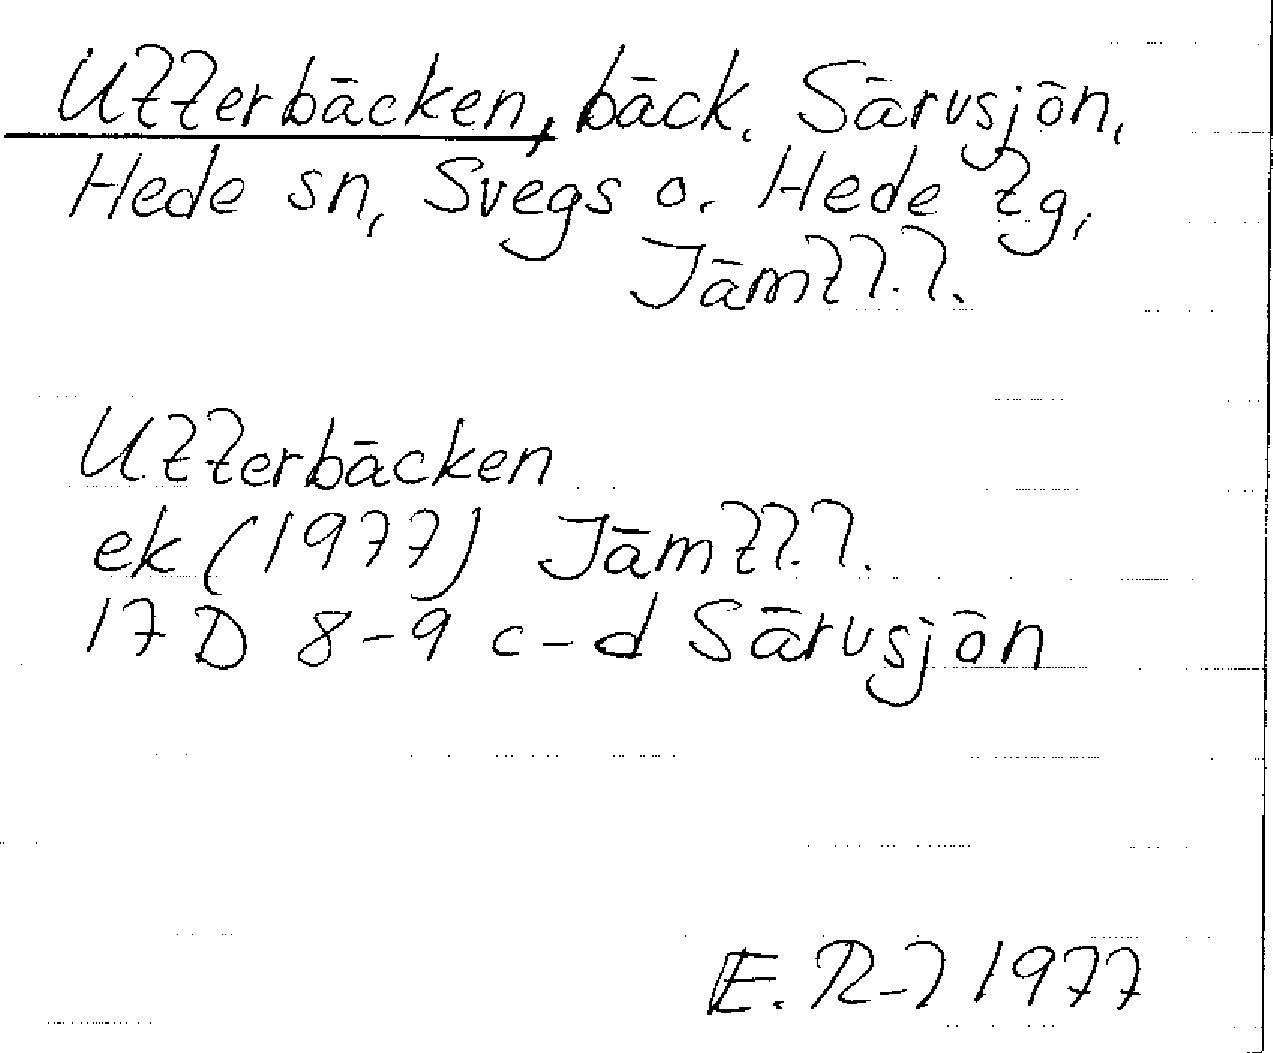 Utterbäcken, bäck. Särvsjön,
Hede sn, Svegs o. Hede tg,
Jämtl.l.
Utterbäcken
ek (1977) Jämtl.l.
17 D 8-9 c-d Särvsjön
E. R-l 1977